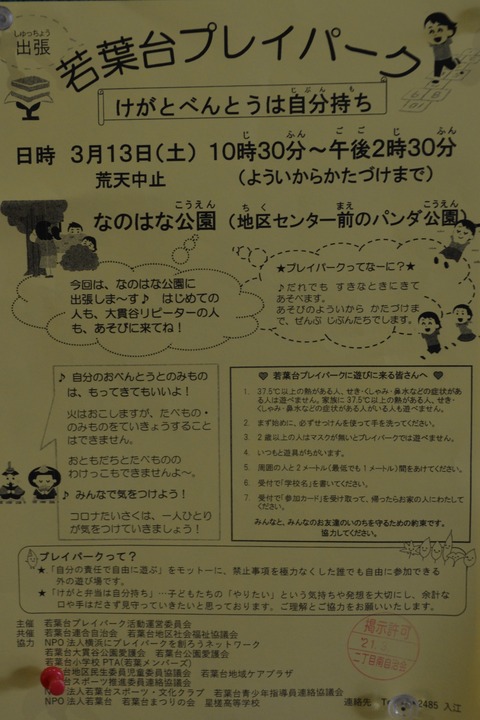 しゅっちょう
出張
若葉台プレイパーク
けがとべんとうは自分持ち
日時 3月13日(土) 10時30分~午後2時30分
荒天中止 (よういからかたづけまで)
なのはな公園 (地区センター前のパンダ公園)
今回は、なのはな公園に
出張しま~す♪ はじめての
人も、大貫谷リピーターの人
も、あそびに来てね!
★プレイパークってなーに?★
♪だれでも すきなときにきて
あそべます。
あそびのよういから かたづけま
で、ぜんぶ じぶんたちでします。
♪ 自分のおべんとうとのみもの
は、もってきてもいいよ!
火はおこしますが、たべもの・
のみものをていきょうすること
はできません。
おともだちとたべものの
わけっこもできませんよ~。
♪ みんなで気をつけよう!
コロナたいさくは、一人ひとり
が気をつけていきましょう!
若葉台プレイパークに遊びに来る皆さんへ
1. 37.5℃以上の熱がある人、せき・くしゃみ・鼻水などの症状があ
る人は遊べません。家族に37.5℃以上の熱がある人、せき・
くしゃみ・鼻水などの症状がある人がいる人も遊べません。
2. まず始めに、必ずせっけんを使って手を洗ってください。
3. 2歳以上の人はマスクが無いとプレイパークでは遊べません。
4. いつもと遊具がちがいます。
5. 周囲の人と2メートル(最低でも1メートル)間をあけてください。
6. 受付で「学校名」を書いてください。
7. 受付で「参加カード」を受け取って、帰ったらお家の人にわたし
てください。
みんなと、みんなのお友達のいのちを守るための約束です。
協力してください。
プレイパークって?
★「自分の責任で自由に遊ぶ」をモットーに、禁止事項を極力なくした誰でも自由に参加できる
外の遊び場です。
★「けがと弁当は自分持ち」…子どもたちの「やりたい」という気持ちや発想を大切にし、余計な
口や手はださず見守っていきたいと思っております。ご理解とご協力をお願いいたします。
主催 若葉台プレイパーク活動運営委員会
共催 若葉台連合自治会 若葉台地区社会福祉協議会
協力 NPO法人横浜にプレイパークを創ろうネットワーク
若葉台大貫谷公園愛護会 若葉台公園愛護会
若葉台小学校PTA(若葉メンバーズ)
台地区民生委員児童委員協議会 若葉台地域ケアプラザ
台スポーツ推進委員連絡協議会
法人若葉台スポーツ・文化クラブ 若葉台青少年指導員連絡協議会
NPO法人若葉台 若葉台まつりの会 星槎高等学校
連絡先 2485 入江
掲示許可